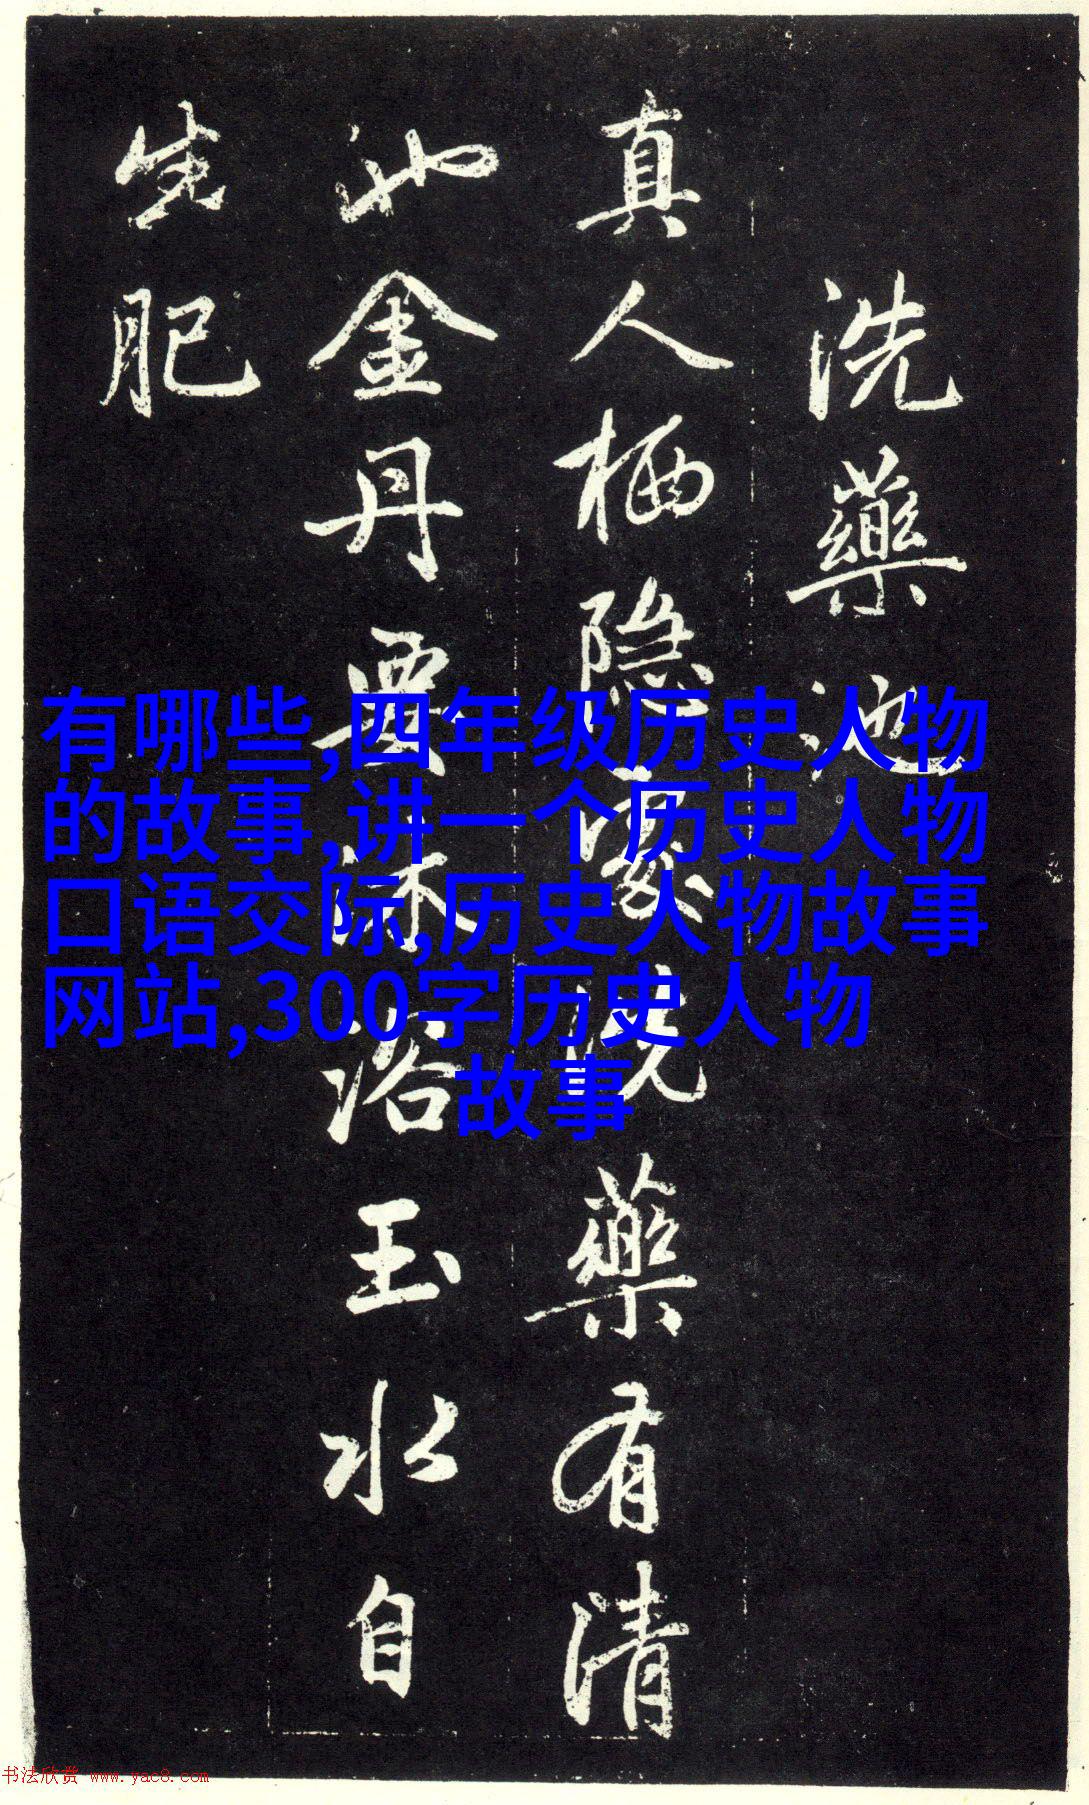 洗藥池
真人栖隐處洗藥有清
池金丹要沐浴玉水自
生肥
有哪些,四年级历史人物
的故事,讲一个历史人物
口语交际,历史人物故事
网站,300字历史人物
故事
书法欣赏 www.yac8.com